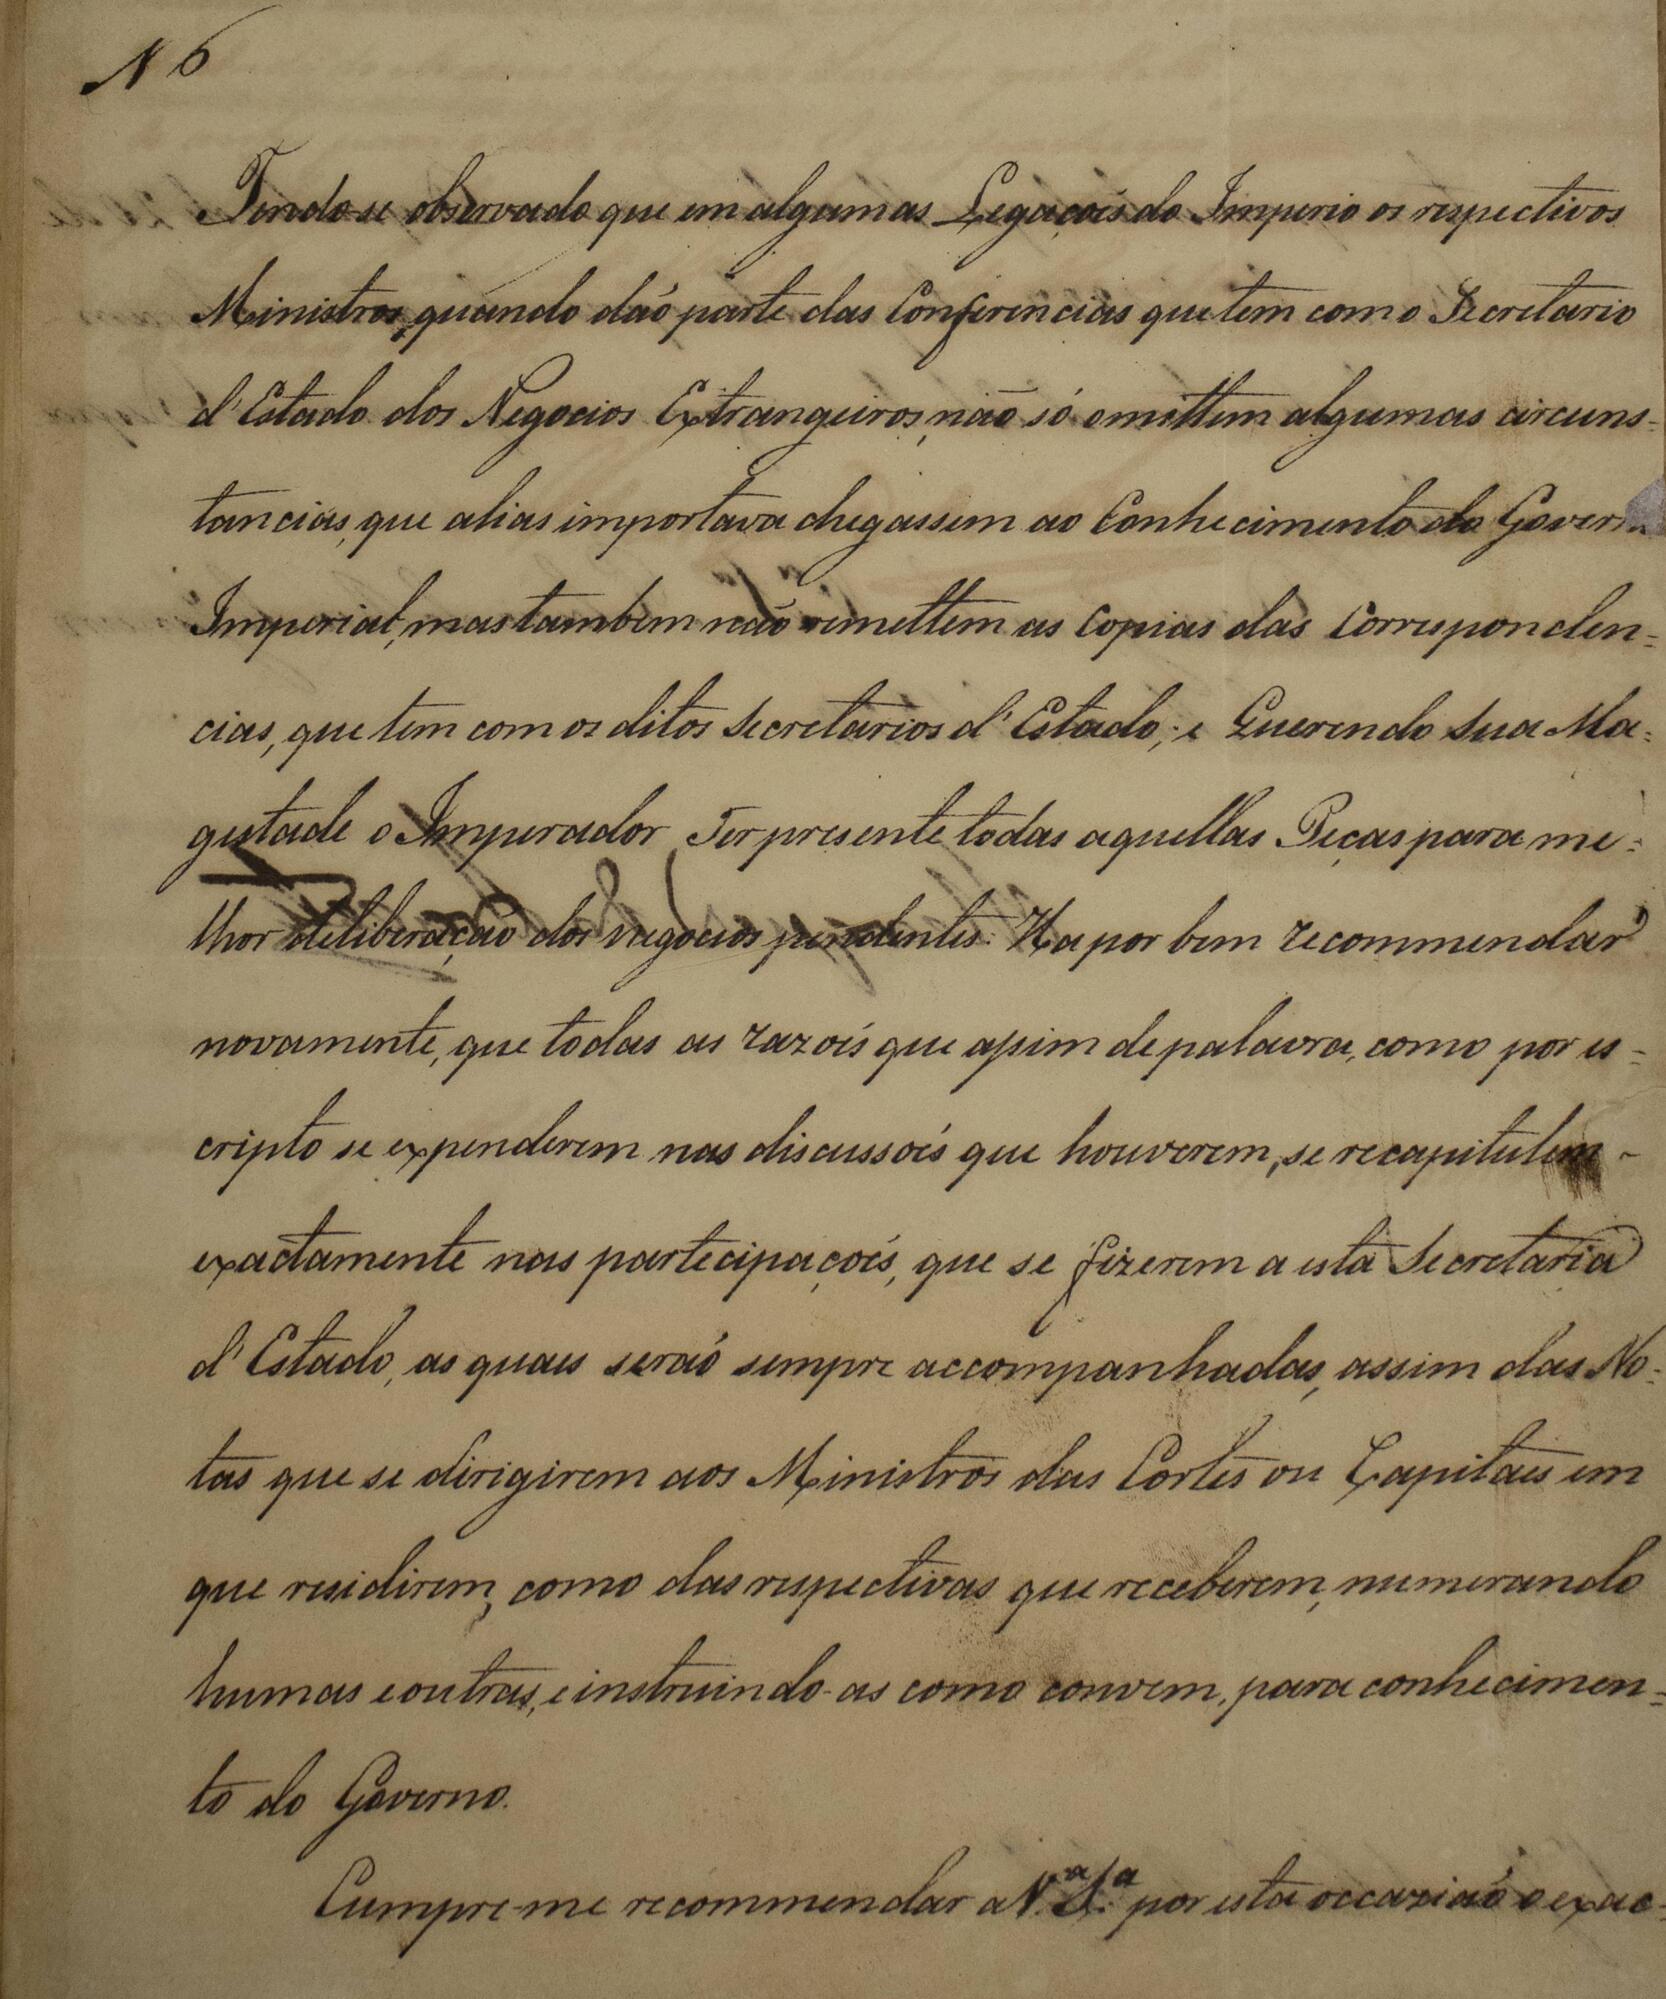 N 6
Tendo-se observado que em algumas Legaçoés do Imperio os respectivos
Ministros, quando daó parte das Conferencias que tem com o Secretario
d'Estado dos Negocios Extrangeiros, não só omittem algumas circuns=
tancias, que alias importava chegassem ao Conhecimento do Governo
Imperial, mas tambem não remettem as Copias das Corresponden=
cias, que tem com os ditos Secretarios d'Estado; e Querendo Sua Ma=
gestade o Imperador Ter presente todas aquellas Peças para me=
lhor deliberação dos negocios pendentes: Ha por bem recommendar
novamente, que todas as razoés que assim de palavra, como por es=
cripto se expenderem nas discussoés que houverem, se recapitulem
exactamente nas partecipaçoés, que se fizerem a esta Secretaria
d'Estado, as quais seraó sempre accompanhadas, assim das No=
tas que se dirigirem aos Ministros das Cortes ou Capitaes em
que residirem, como das respectivas que receberem, numerando
humas e outras, e instruindo-as como convem, para conhecimen=
to do Governo.
Cumpre-me recommendar a V.ª S.ª por esta occaziaó o exac=